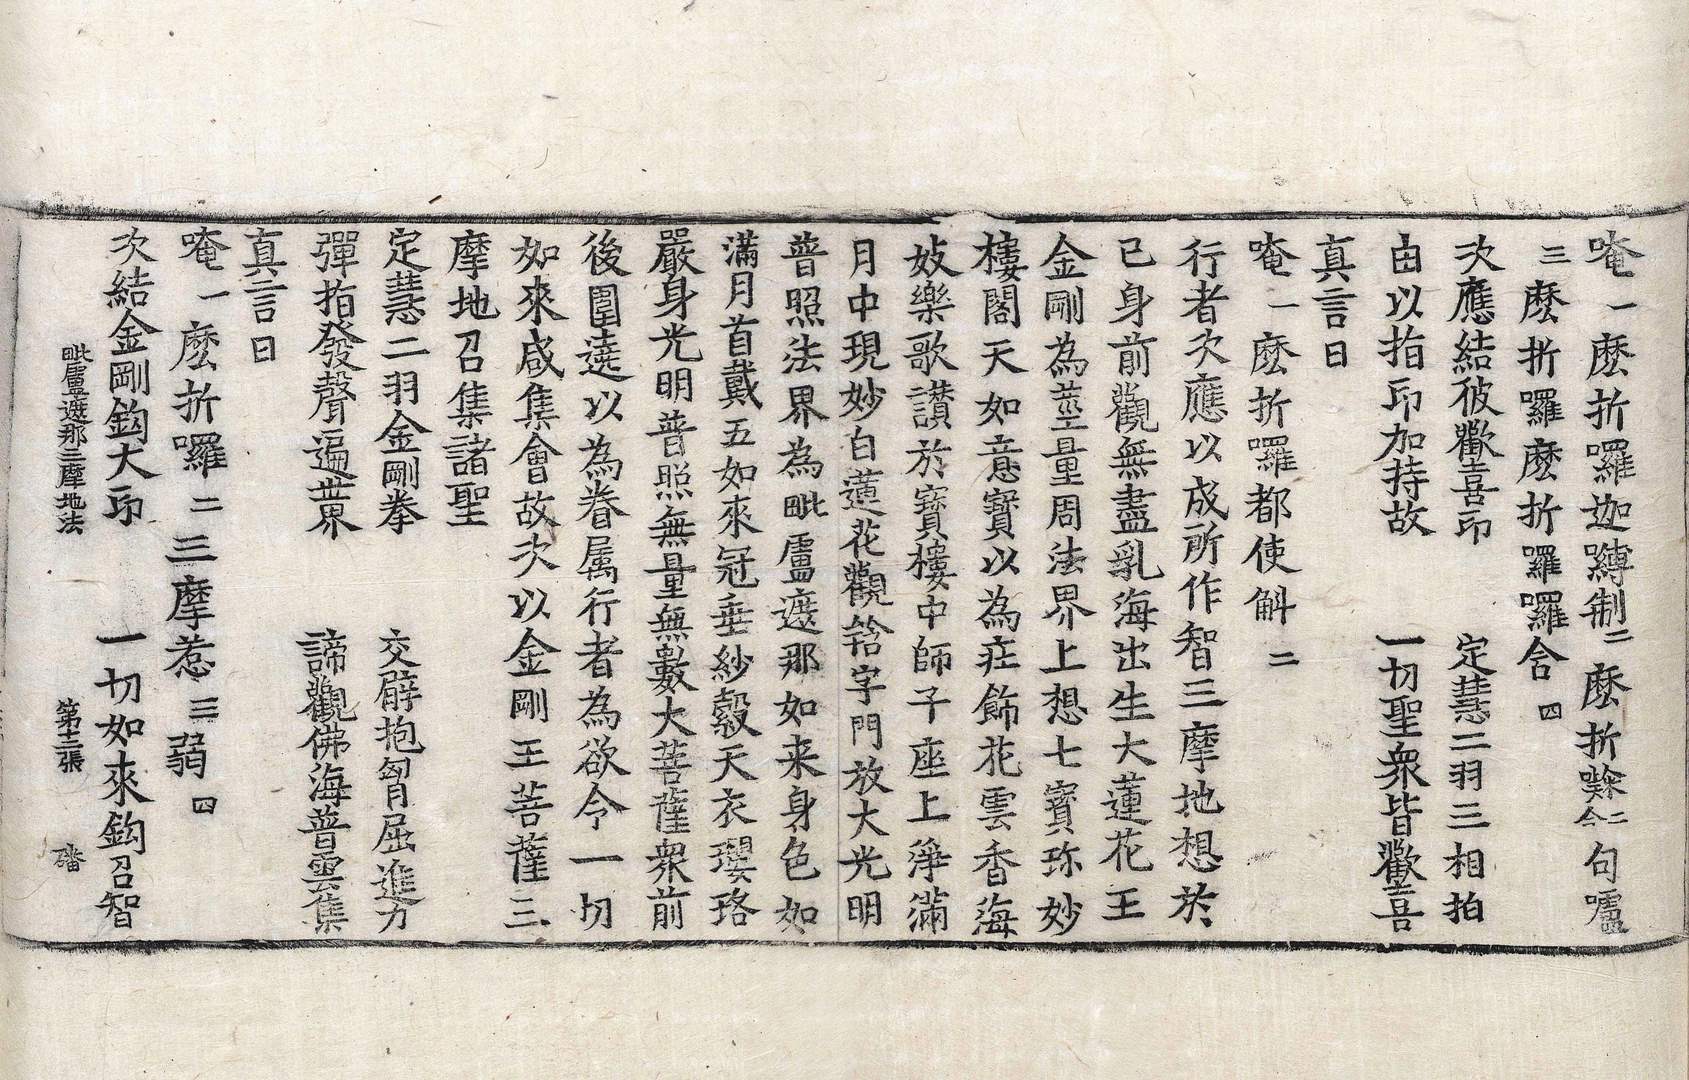 唵一麽折囉迦嚩制二麽折㘑二合句嚧
三麽折囉麽折囉囉含四
次應結彼歡喜印　定慧二羽三相拍
由以指印加持故　一切聖衆皆歡喜
真言曰
唵一麽折囉都使斛二
行者次應以成所作智三摩地想於
已身前觀無盡乳海出生大蓮花王
金剛為莖量周法界上想七寶珎妙
樓閣天如意寶以為莊飾花雲香海
妓樂歌讃於寶樓中師子座上淨滿
月中現妙白蓮花觀𤚥字門放大光明
普照法界為毗盧遮那如来身色如
滿月首戴五如來冠垂紗縠天衣瓔珞
嚴身光明普照無量無數大菩薩衆前
後圍遶以為眷属行者為欲令一切
如來咸集會故次以金剛王菩薩三
摩地召集諸聖
定慧二羽金剛拳　交臂抱胷屈進力
彈指發聲遍世界　諦觀佛海普雲集
真言曰
唵一麽折囉二三摩惹三弱四
次結金剛鉤大印　一切如來鉤召智
毗盧遮那三摩地法　第十二張　磻